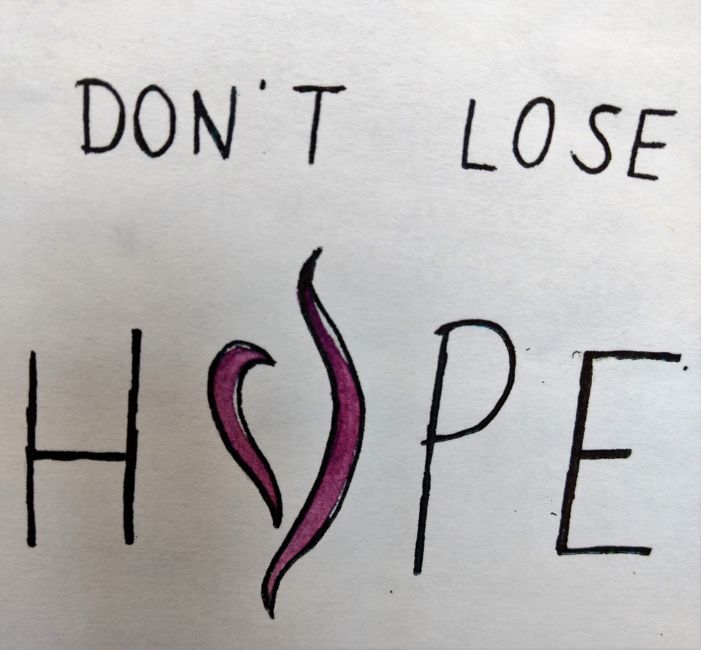 DON'T LOSE
HOPE